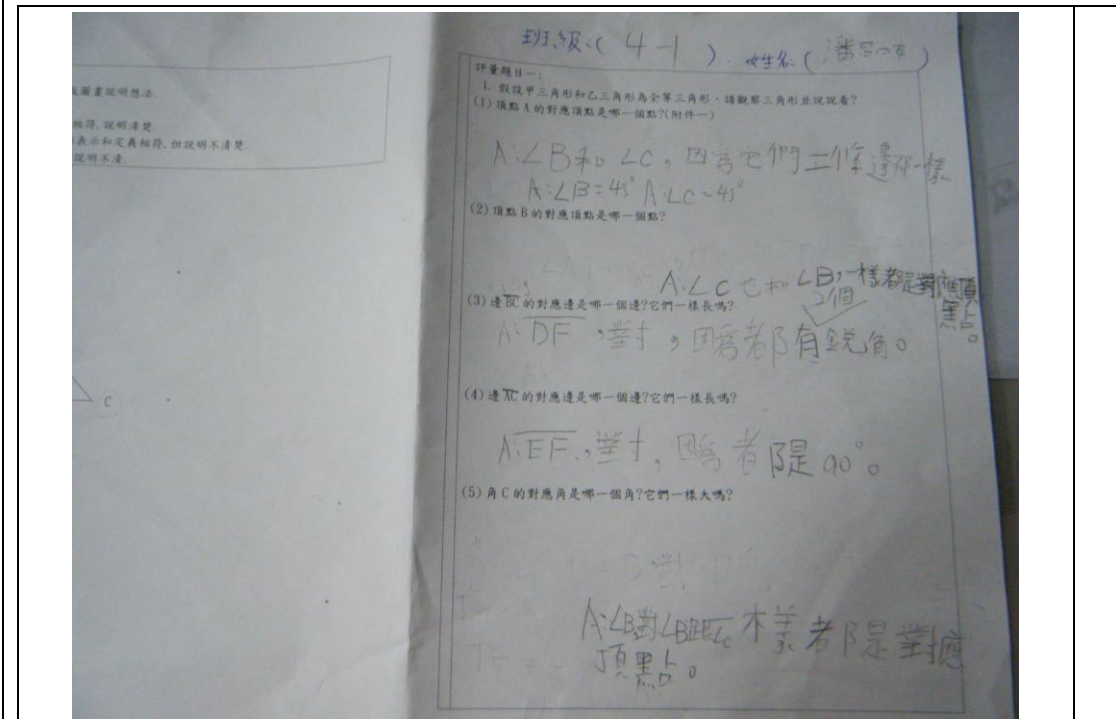 圖畫說明想法.
相符, 說明清楚.
表示和定義相符, 但說明不清楚.
說明不清.
C
班級:( 4-1 ). 姓名:( 潘 )
評量題目一:
1. 假設甲三角形和乙三角形為全等三角形,請觀察三角形並說說看?
(1) 頂點 A 的對應頂點是哪一個點?(附件一)
A:∠B和∠C, 因為它們二條邊都一樣
A:∠B=45° A:∠C=45°
(2) 頂點 B 的對應頂點是哪一個點?
A:∠C 它和∠B,一樣都是對應頂點。
2個
(3) 邊BC的對應邊是哪一個邊?它們一樣長嗎?
A:DF,對,因為都有銳角。
(4) 邊AC的對應邊是哪一個邊?它們一樣長嗎?
A:EF,對,因為都是90°。
(5) 角 C 的對應角是哪一個角?它們一樣大嗎?
A:∠B對∠B跟∠C一樣都是對應
頂點。